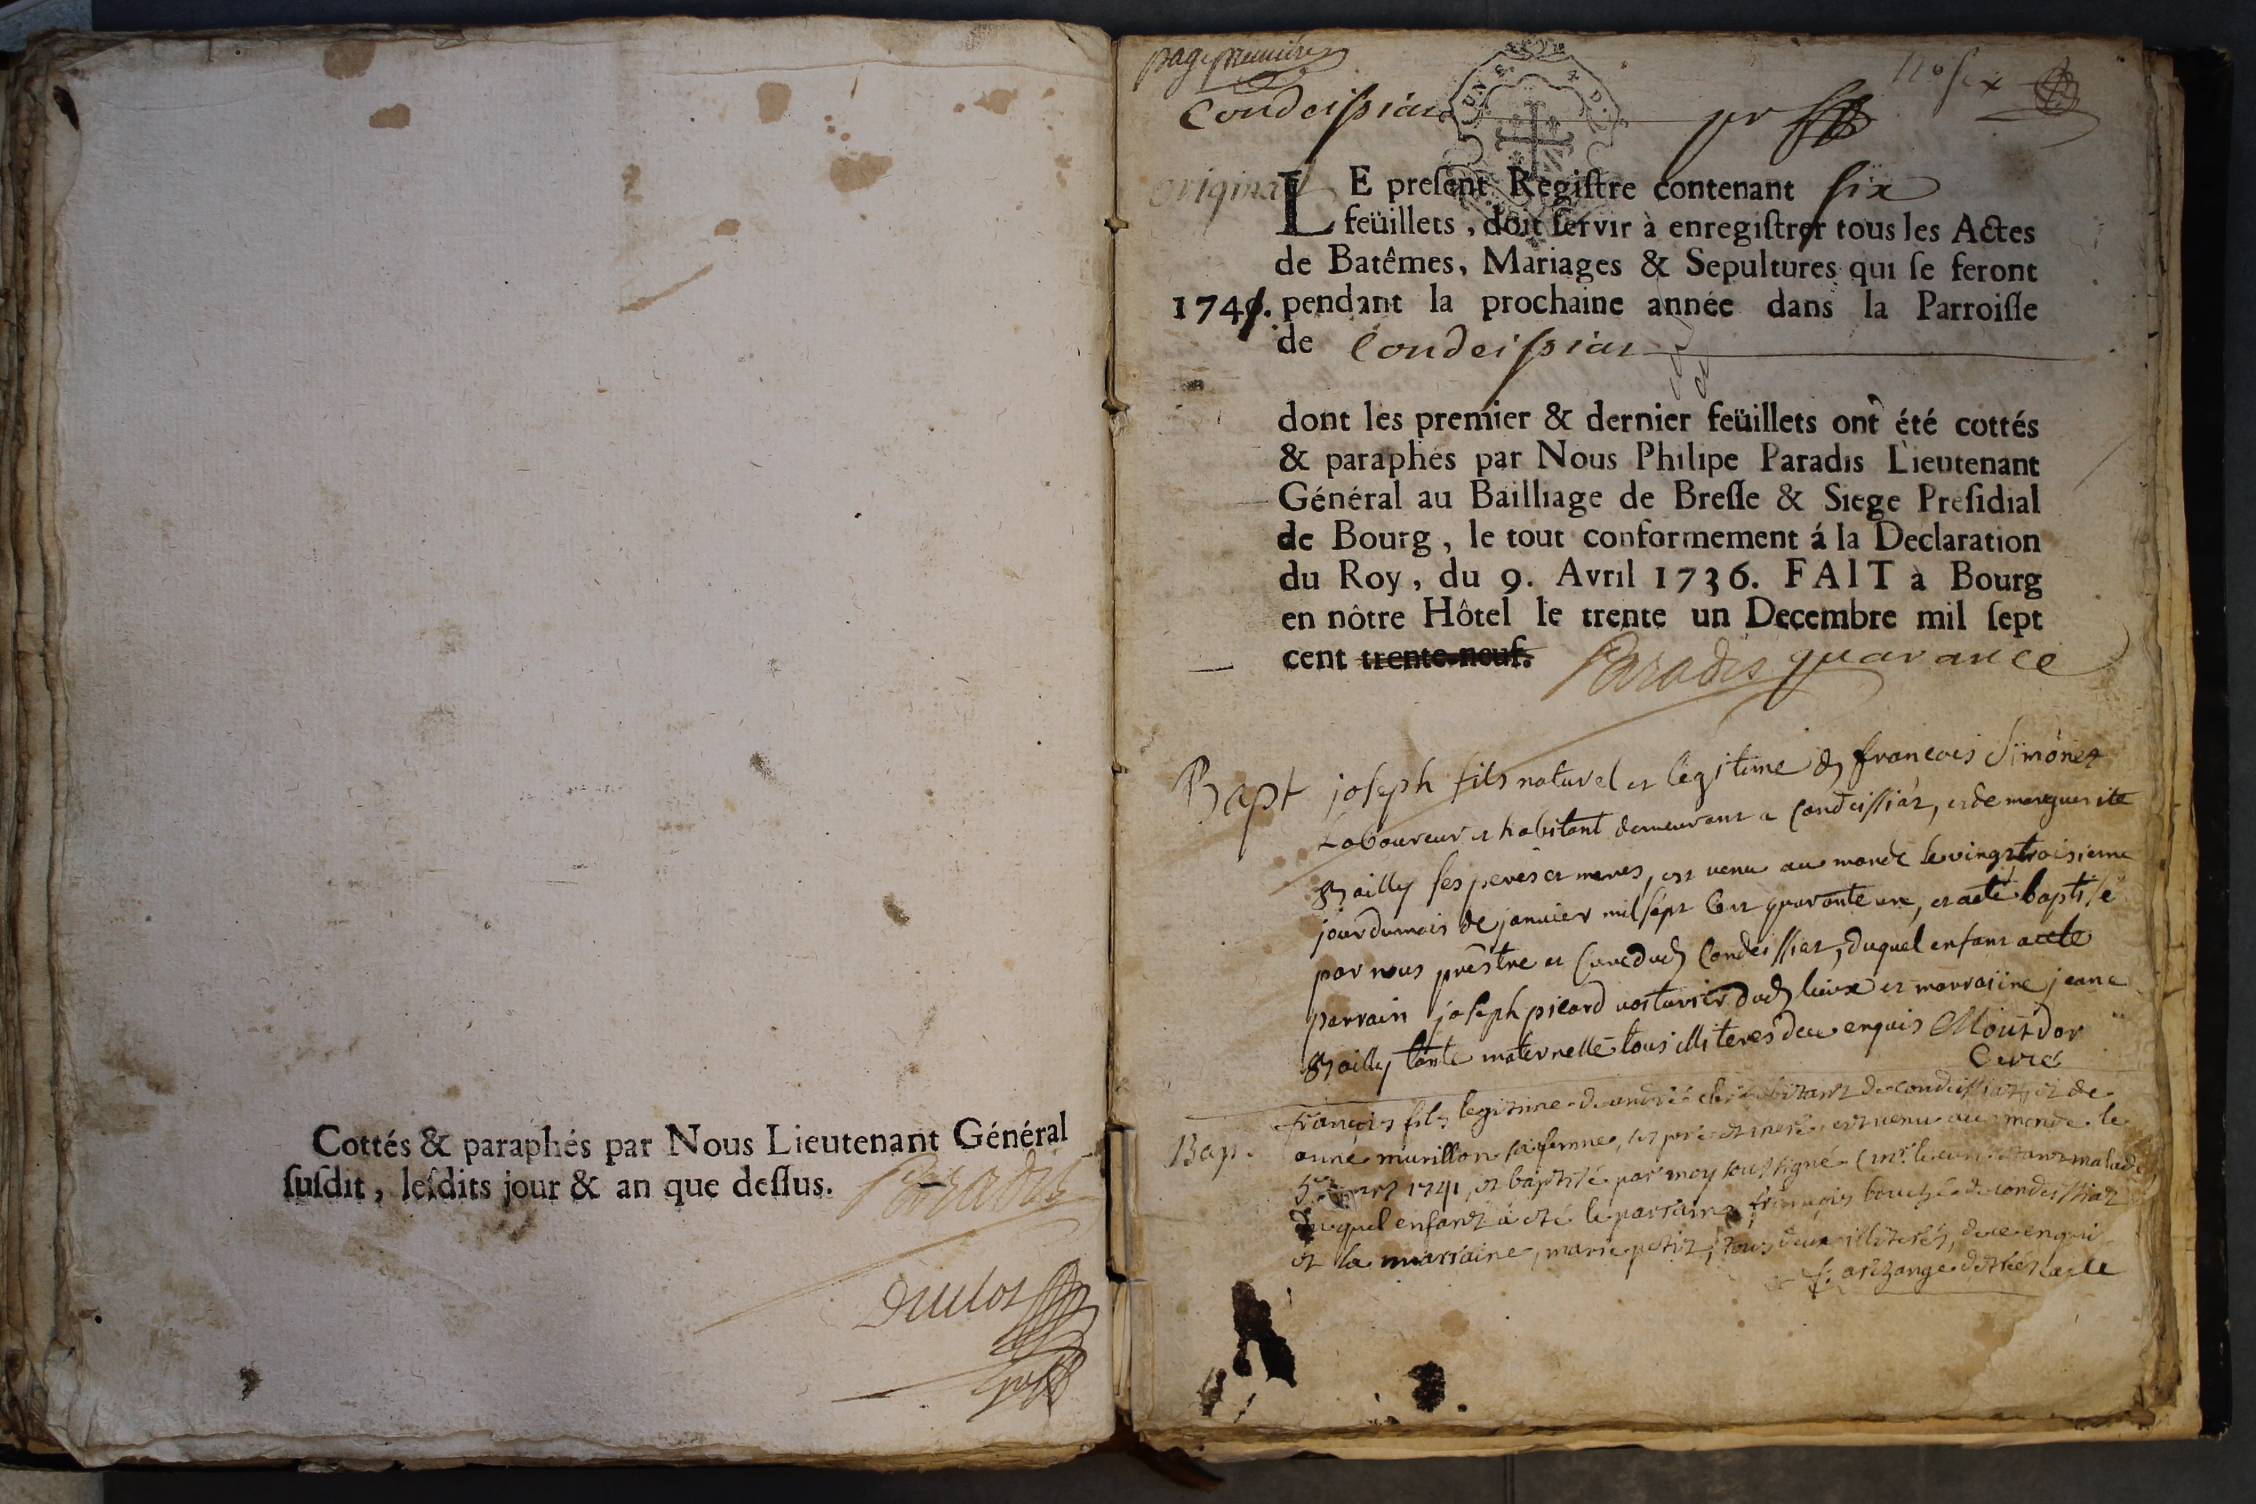 Cottés & paraphés par Nous Lieutenant Général
ſuſdit, leſdits jour & an que deſſus. Paradis
Duclos
page premiere
no six
Condeissiat
original
LE preſent Regiſtre contenant six
feüillets, doit ſervir à enregiſtrer tous les Actes
de Batêmes, Mariages & Sepultures qui ſe feront
1741. pendant la prochaine année dans la Parroiſſe
de Condeissiat
dont les premier & dernier feüillets ont été cottés
& paraphés par Nous Philipe Paradis Lieutenant
Général au Bailliage de Breſſe & Siege Preſidial
de Bourg, le tout conformement á la Declaration
du Roy, du 9. Avril 1736. FAIT à Bourg
en nôtre Hôtel le trente un Decembre mil ſept
cent trente-neuf. Paradis quarante
Bapt joseph fils naturel et legitime de francois Simonet
Laboureur et habitant demeurant a Condeissiat, et de marguerite
Bailly ses peres et meres, est venu au monde le vingt troisieme
jour du mois de janvier mil sept cent quarante un, et a eté baptisé
par nous prestre et Curé dud Condeissiat, duquel enfant a eté
parrain joseph picard voiturier dud lieux et marraine jeane
Bailly tante maternelle tous illiteres de ce enquis Montdor
Curé
Bap. françois fils legitime de andré habitant de condeissiat, et de
anne murillon sa femme, ses pere et mere est venu au monde le
1741, et baptisé par moy soussigné (mr. le curé etant malade)
duquel enfant à eté le parrain françois bouchz de condeissiat
et la marraine, marie petit, tous deux illiterés, de ce enquis
f. archange